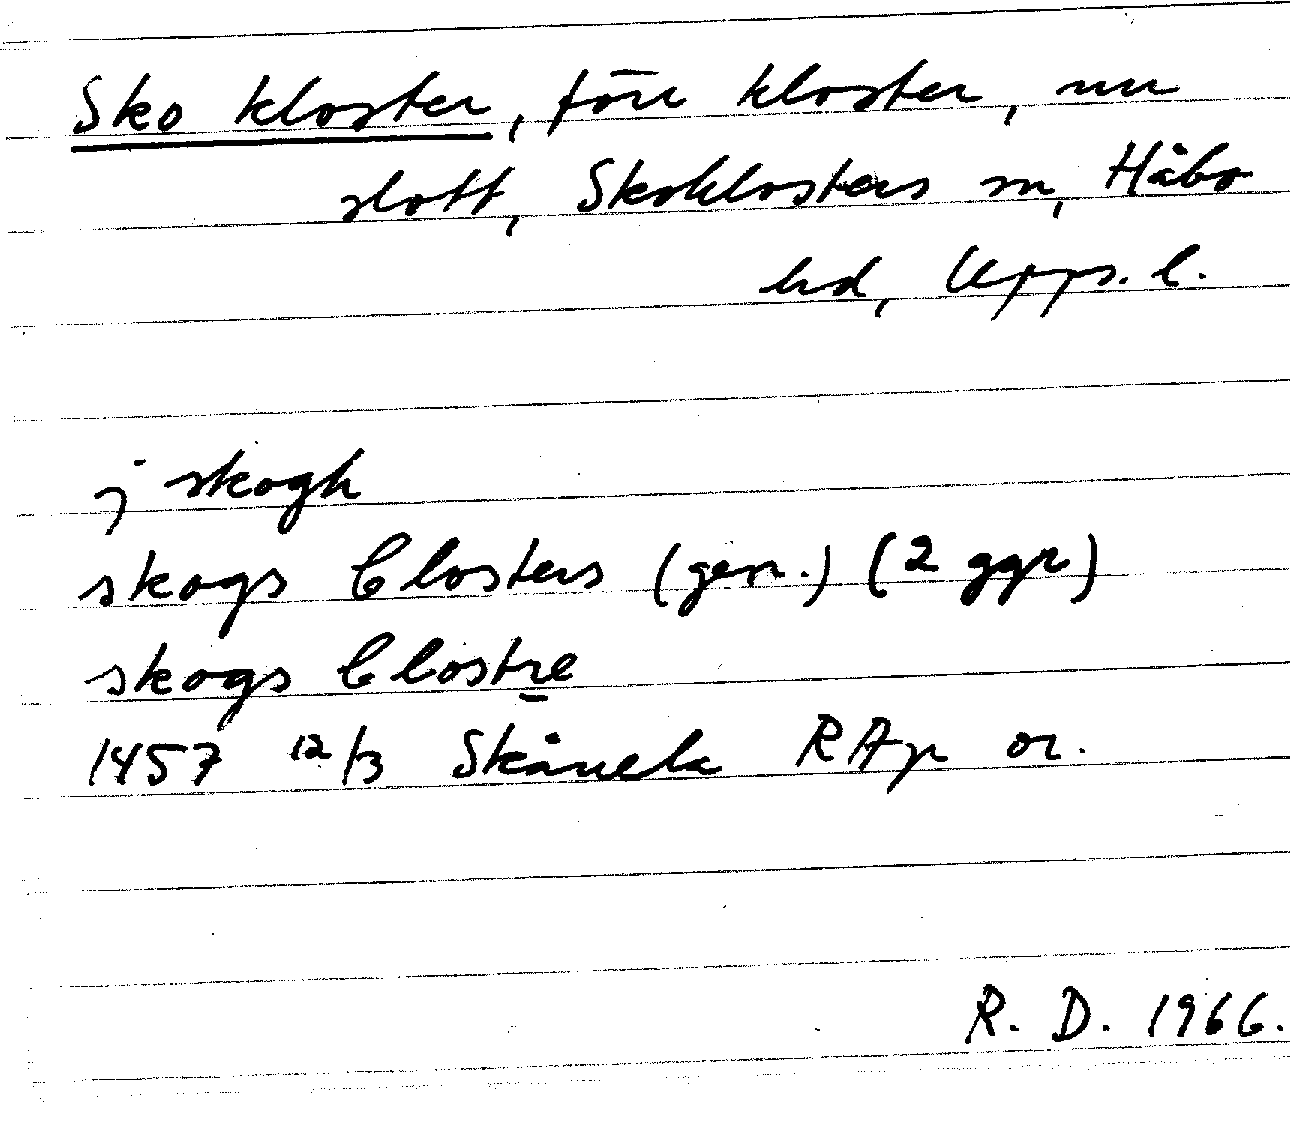 Sko kloster, förr kloster, nu
slott, Skoklosters sn, Håbo
hd, Upps. l.
j skogh
skogs Closters (gen.) (2 ggr)
skogs Clostre
1457 12/3 Skånela RAp or.
R. D. 1966.